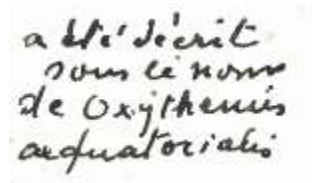 a été décrit
sous le nom
de Oxythemis
aequatorialis